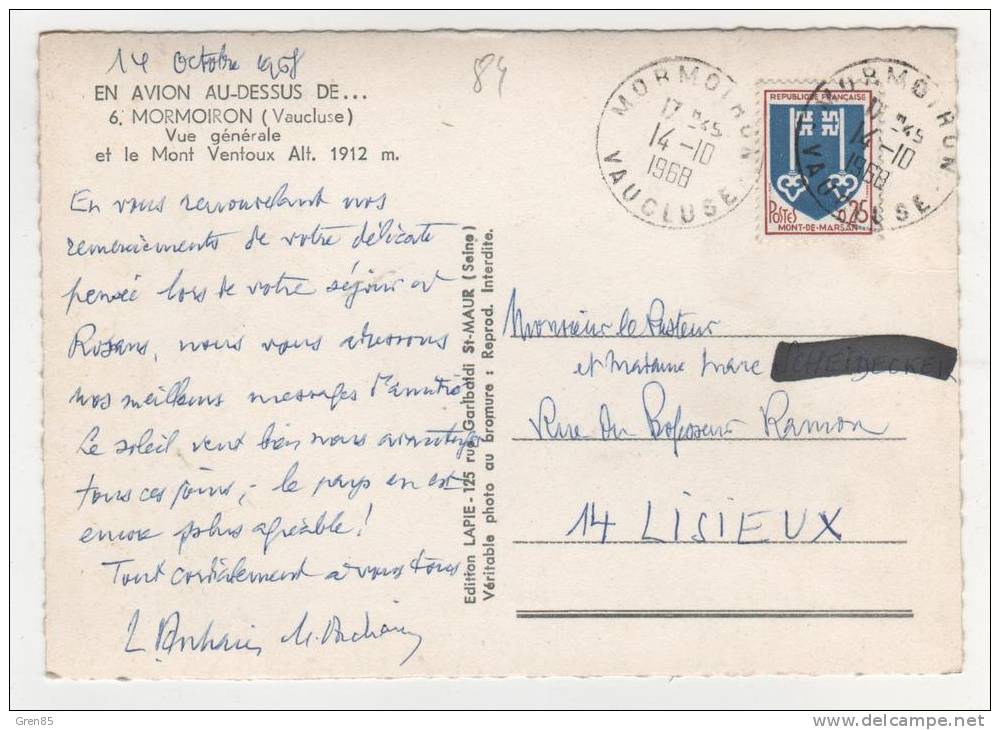 14 Octobre 1968
84
EN AVION AU-DESSUS DE...
6. MORMOIRON (Vaucluse)
Vue générale
et le Mont Ventoux Alt. 1912 m.
En vous renouvelant nos
remerciements de votre délicate
pensée lors de votre séjour à
Rosans, nous vous adressons
nos meilleurs messages d'amitié
Le soleil veut bien nous avantager
tous ces jours, - le pays en est
encore plus agréable!
Tout cordialement à vous tous
Edition LAPIE - 125 rue Garibaldi St-MAUR (Seine)
Véritable photo au bromure : Reprod. Interdite.
MORMOIRON
17 H45
14-10
1968
VAUCLUSE
REPUBLIQUE FRANÇAISE
POSTES
0,25
MONT-DE-MARSAN
MORMOIRON
17 H45
14-10
1968
VAUCLUSE
Monsieur le Pasteur
et Madame Marc
Rue du Professeur Ramon
14 LISIEUX
Gren85
delcampe.net